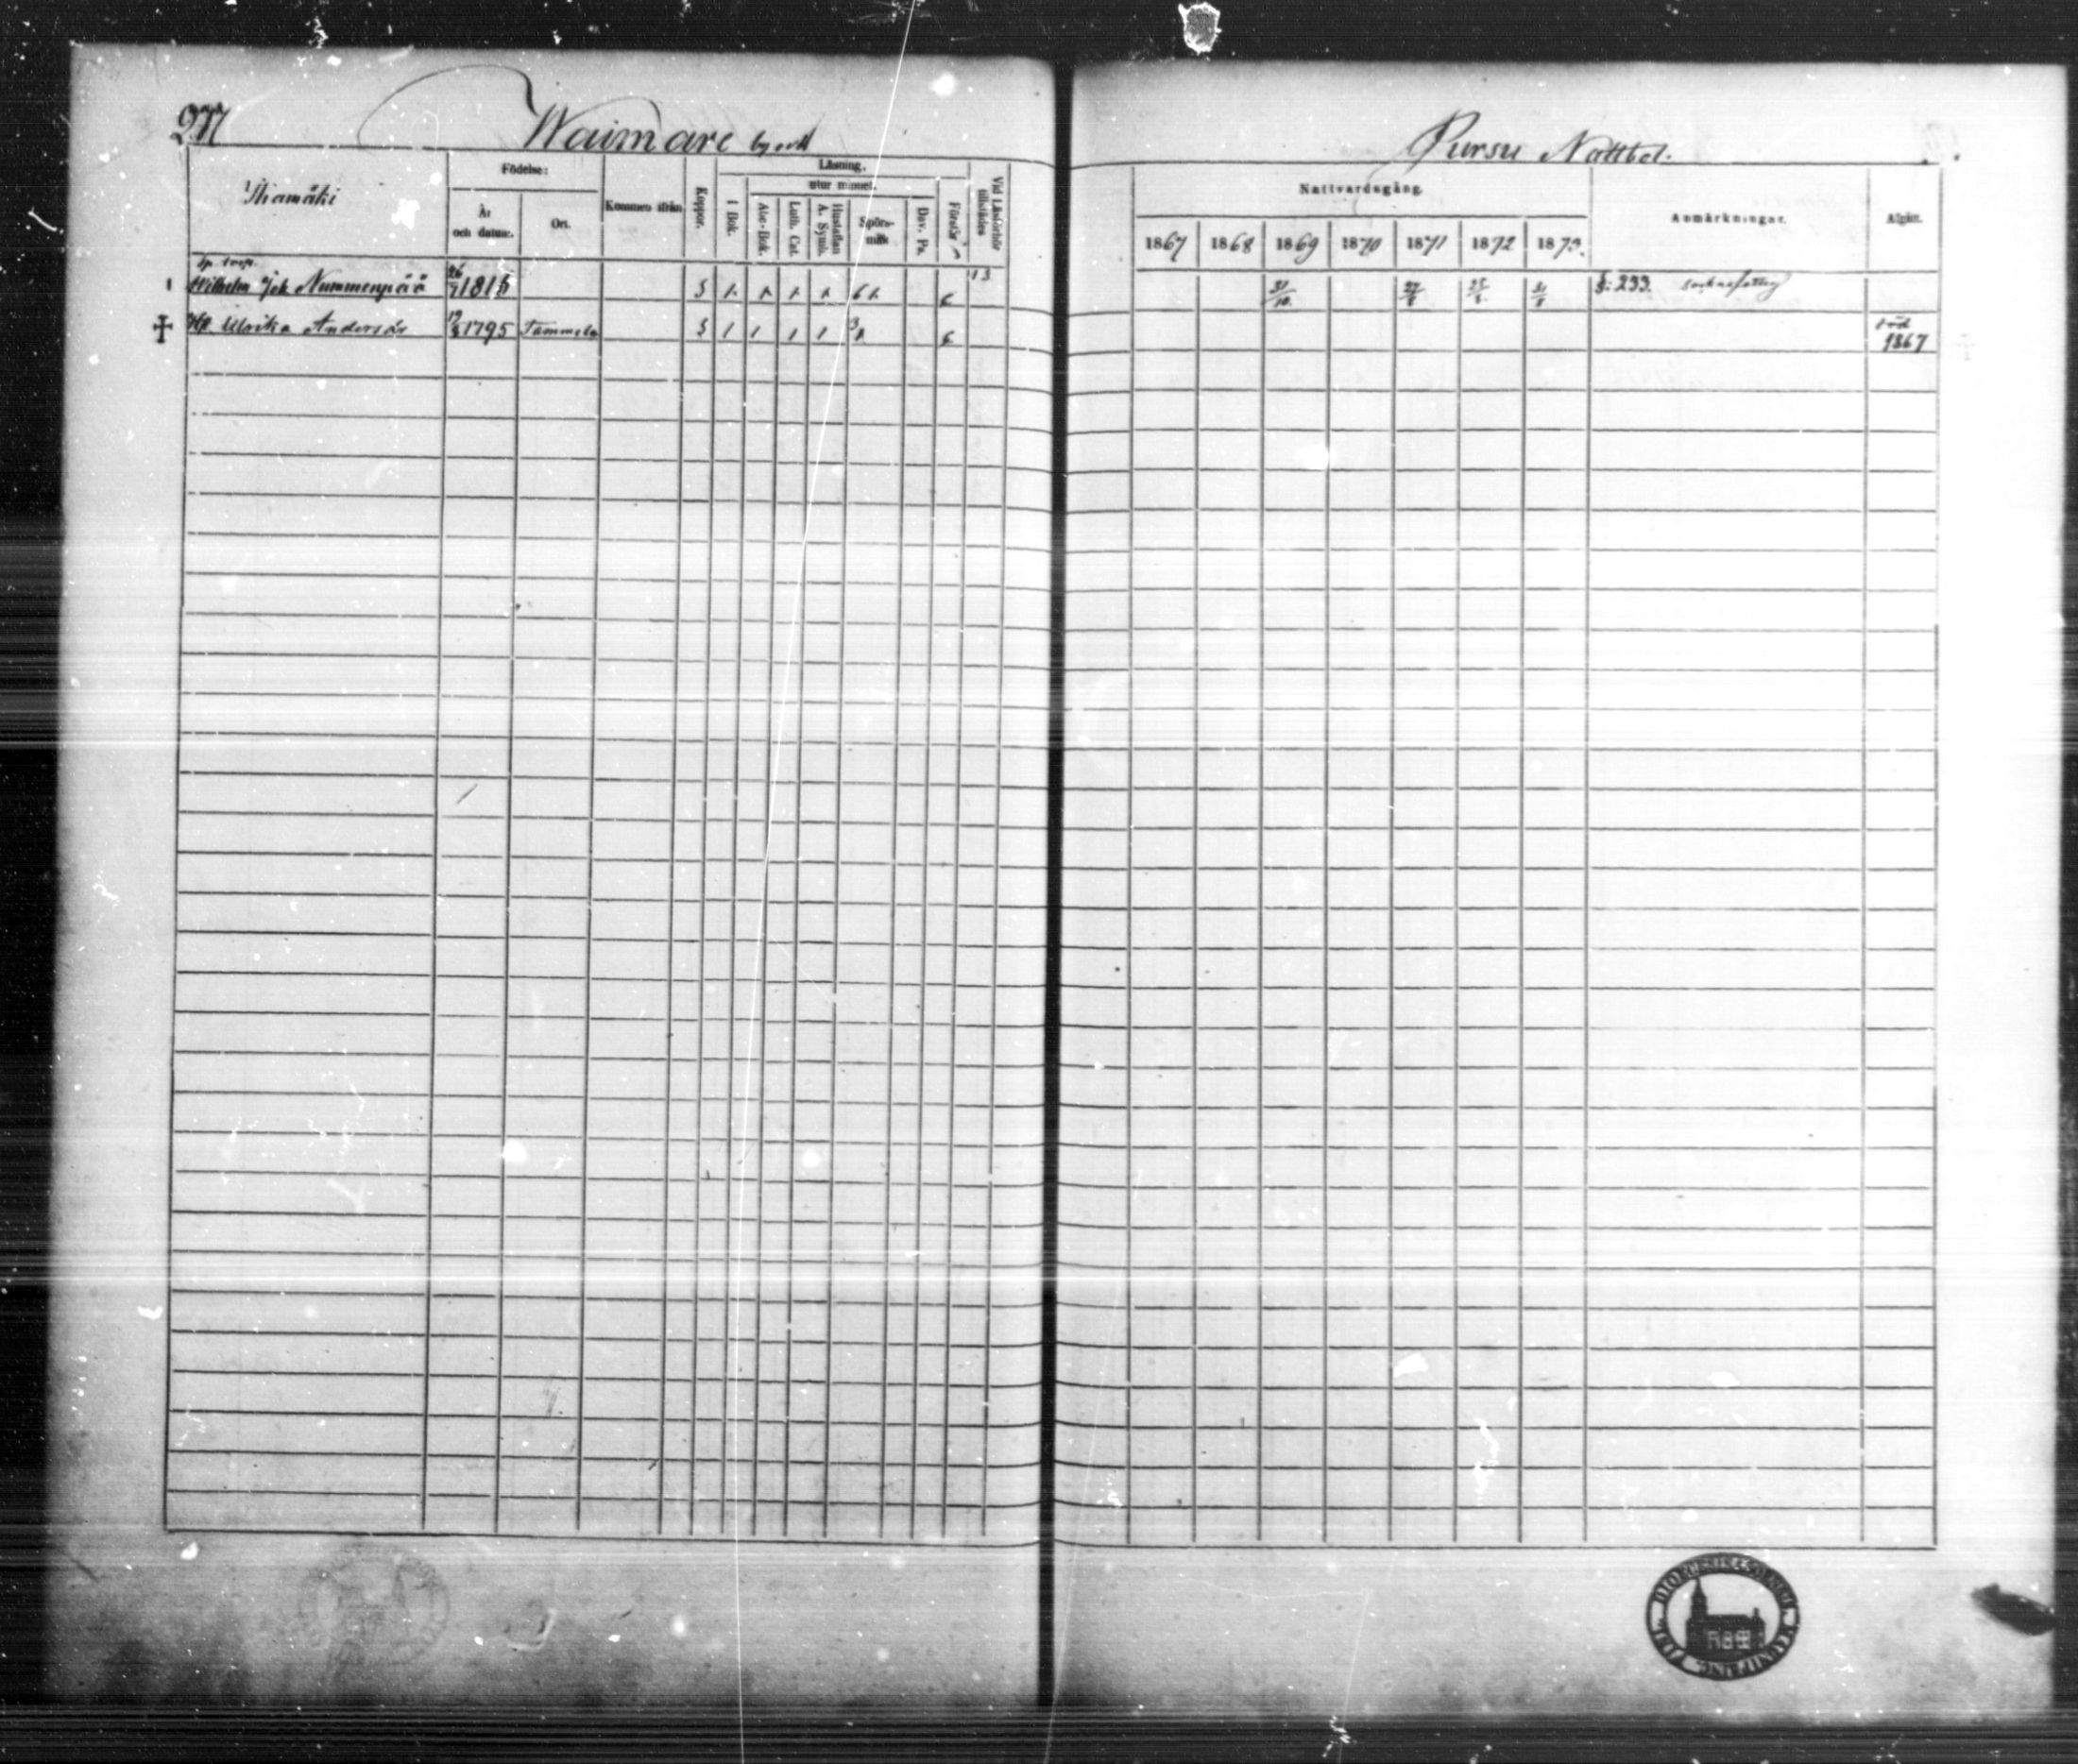 277 Waimare by och Pursu Nattbol.
Yliamäki
Födelse:
År och datum.
Ort.
Kommen ifrån
Koppor.
Läsning.
utur minnet.
I Bok.
Abc-Bok.
Luth. Cat.
Hustaflan A. Symb.
Spörs-mål
Dav. Ps.
Förstår
Vid Läsförhör tillstädes
Nattvardsgång.
1867 1868 1869 1870 1871 1872 1873.
Anmärkningar.
Afgått.
1 Wilhelm Joh. Nummenpää 26/7 181 § 1 1 1 1 6 1 13 31/10 §: 293.
Ulrika Andersdr 1795 Tammela § 1 1 1 1 3 död 1867